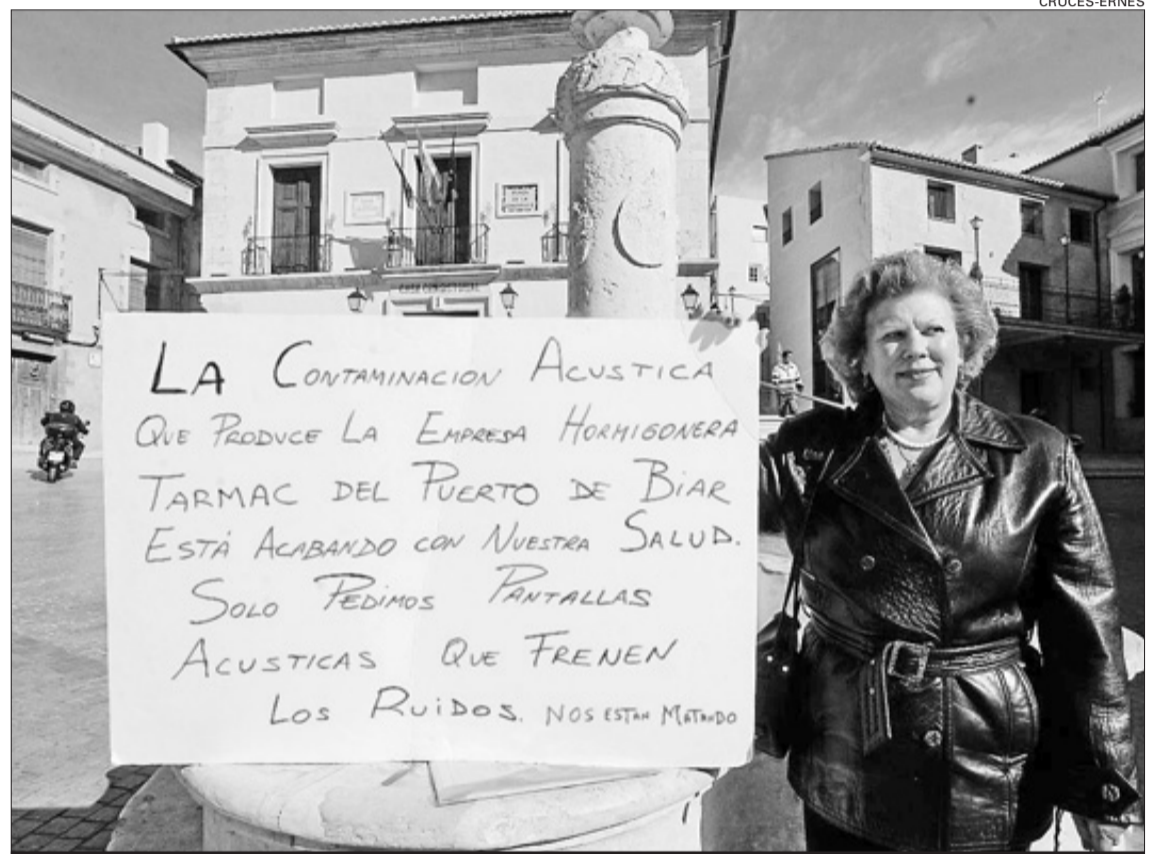 CRUCES-ERNES
CASA CONSISTORIAL
LA CONTAMINACION ACUSTICA
QUE PRODUCE LA EMPRESA HORMIGONERA
TARMAC DEL PUERTO DE BIAR
ESTÁ ACABANDO CON NUESTRA SALUD.
SOLO PEDIMOS PANTALLAS
ACUSTICAS QUE FRENEN
LOS RUIDOS. NOS ESTAN MATANDO